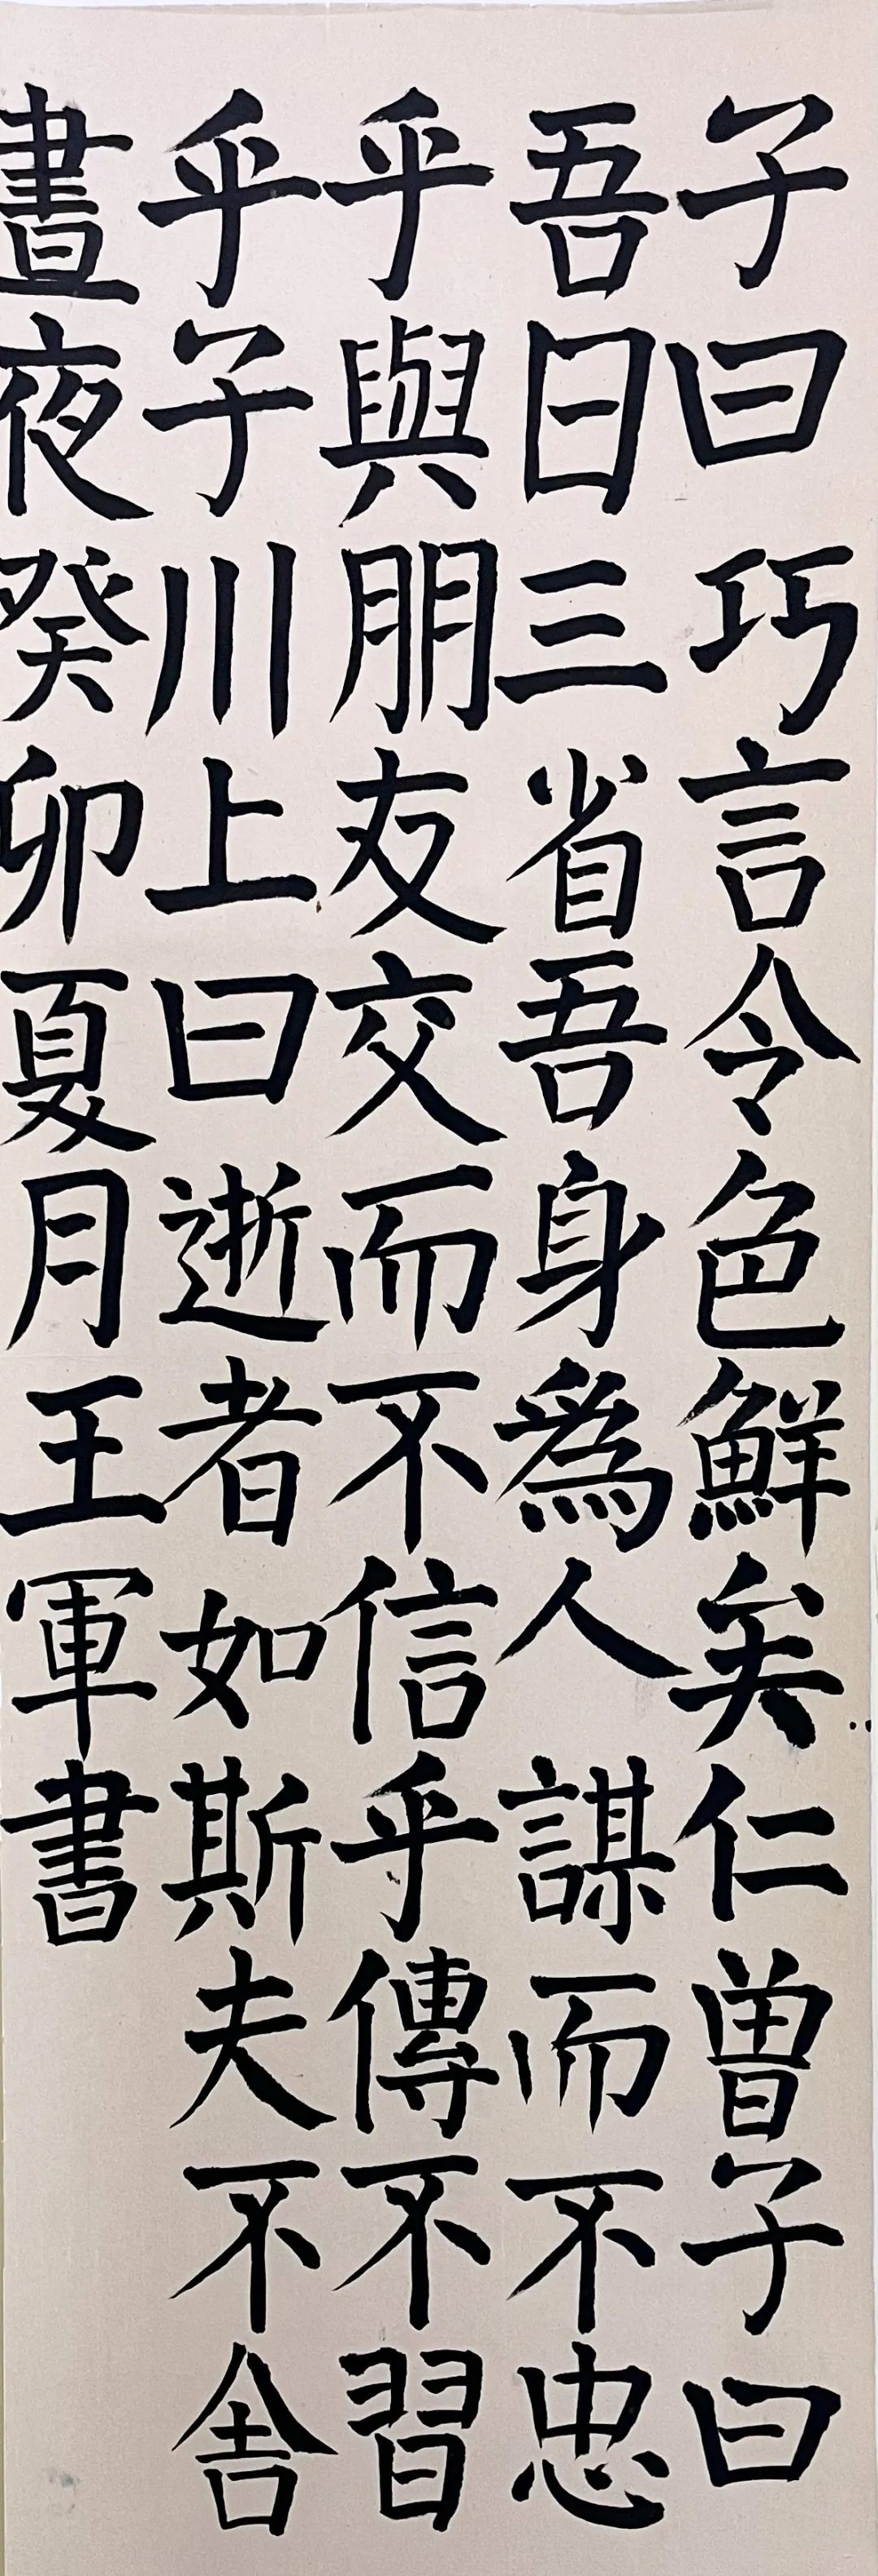 子曰巧言令色鮮矣仁曾子曰
吾日三省吾身爲人謀而不忠
乎與朋友交而不信乎傳不習
乎子川上曰逝者如斯夫不舍
晝夜癸卯夏月王軍書